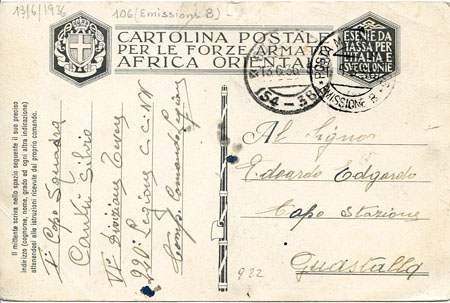 13/6/1936
106 (Emissione B) -
CARTOLINA POSTALE
PER LE FORZE ARMATE
AFRICA ORIENTALE
ESENTE DA
TASSA PER
L'ITALIA E
SUE COLONIE
13.6.36
POSTA
EMISSIONE B
Il mittente scriva nello spazio seguente il suo preciso
indirizzo (cognome, nome, grado ed ogni altra indicazione)
attenendosi alle istruzioni ricevute dal proprio comando.
1° Capo Squadra
Cantù Silvio
VI° Divizione Tevere
220° Legione C.C.N.N.
Comp. Comando Legione
Al Signor
Edoardo Edgardo
Capo Stazione
Guastalla
922